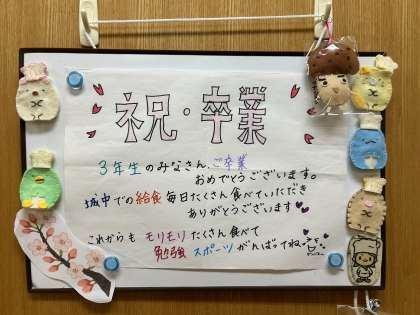 祝・卒業
3年生のみなさん、ご卒業
おめでとうございます。
城中での給食毎日たくさん食べていただき
ありがとうございます
これからも モリモリ たくさん食べて
勉強 スポーツ がんばってね